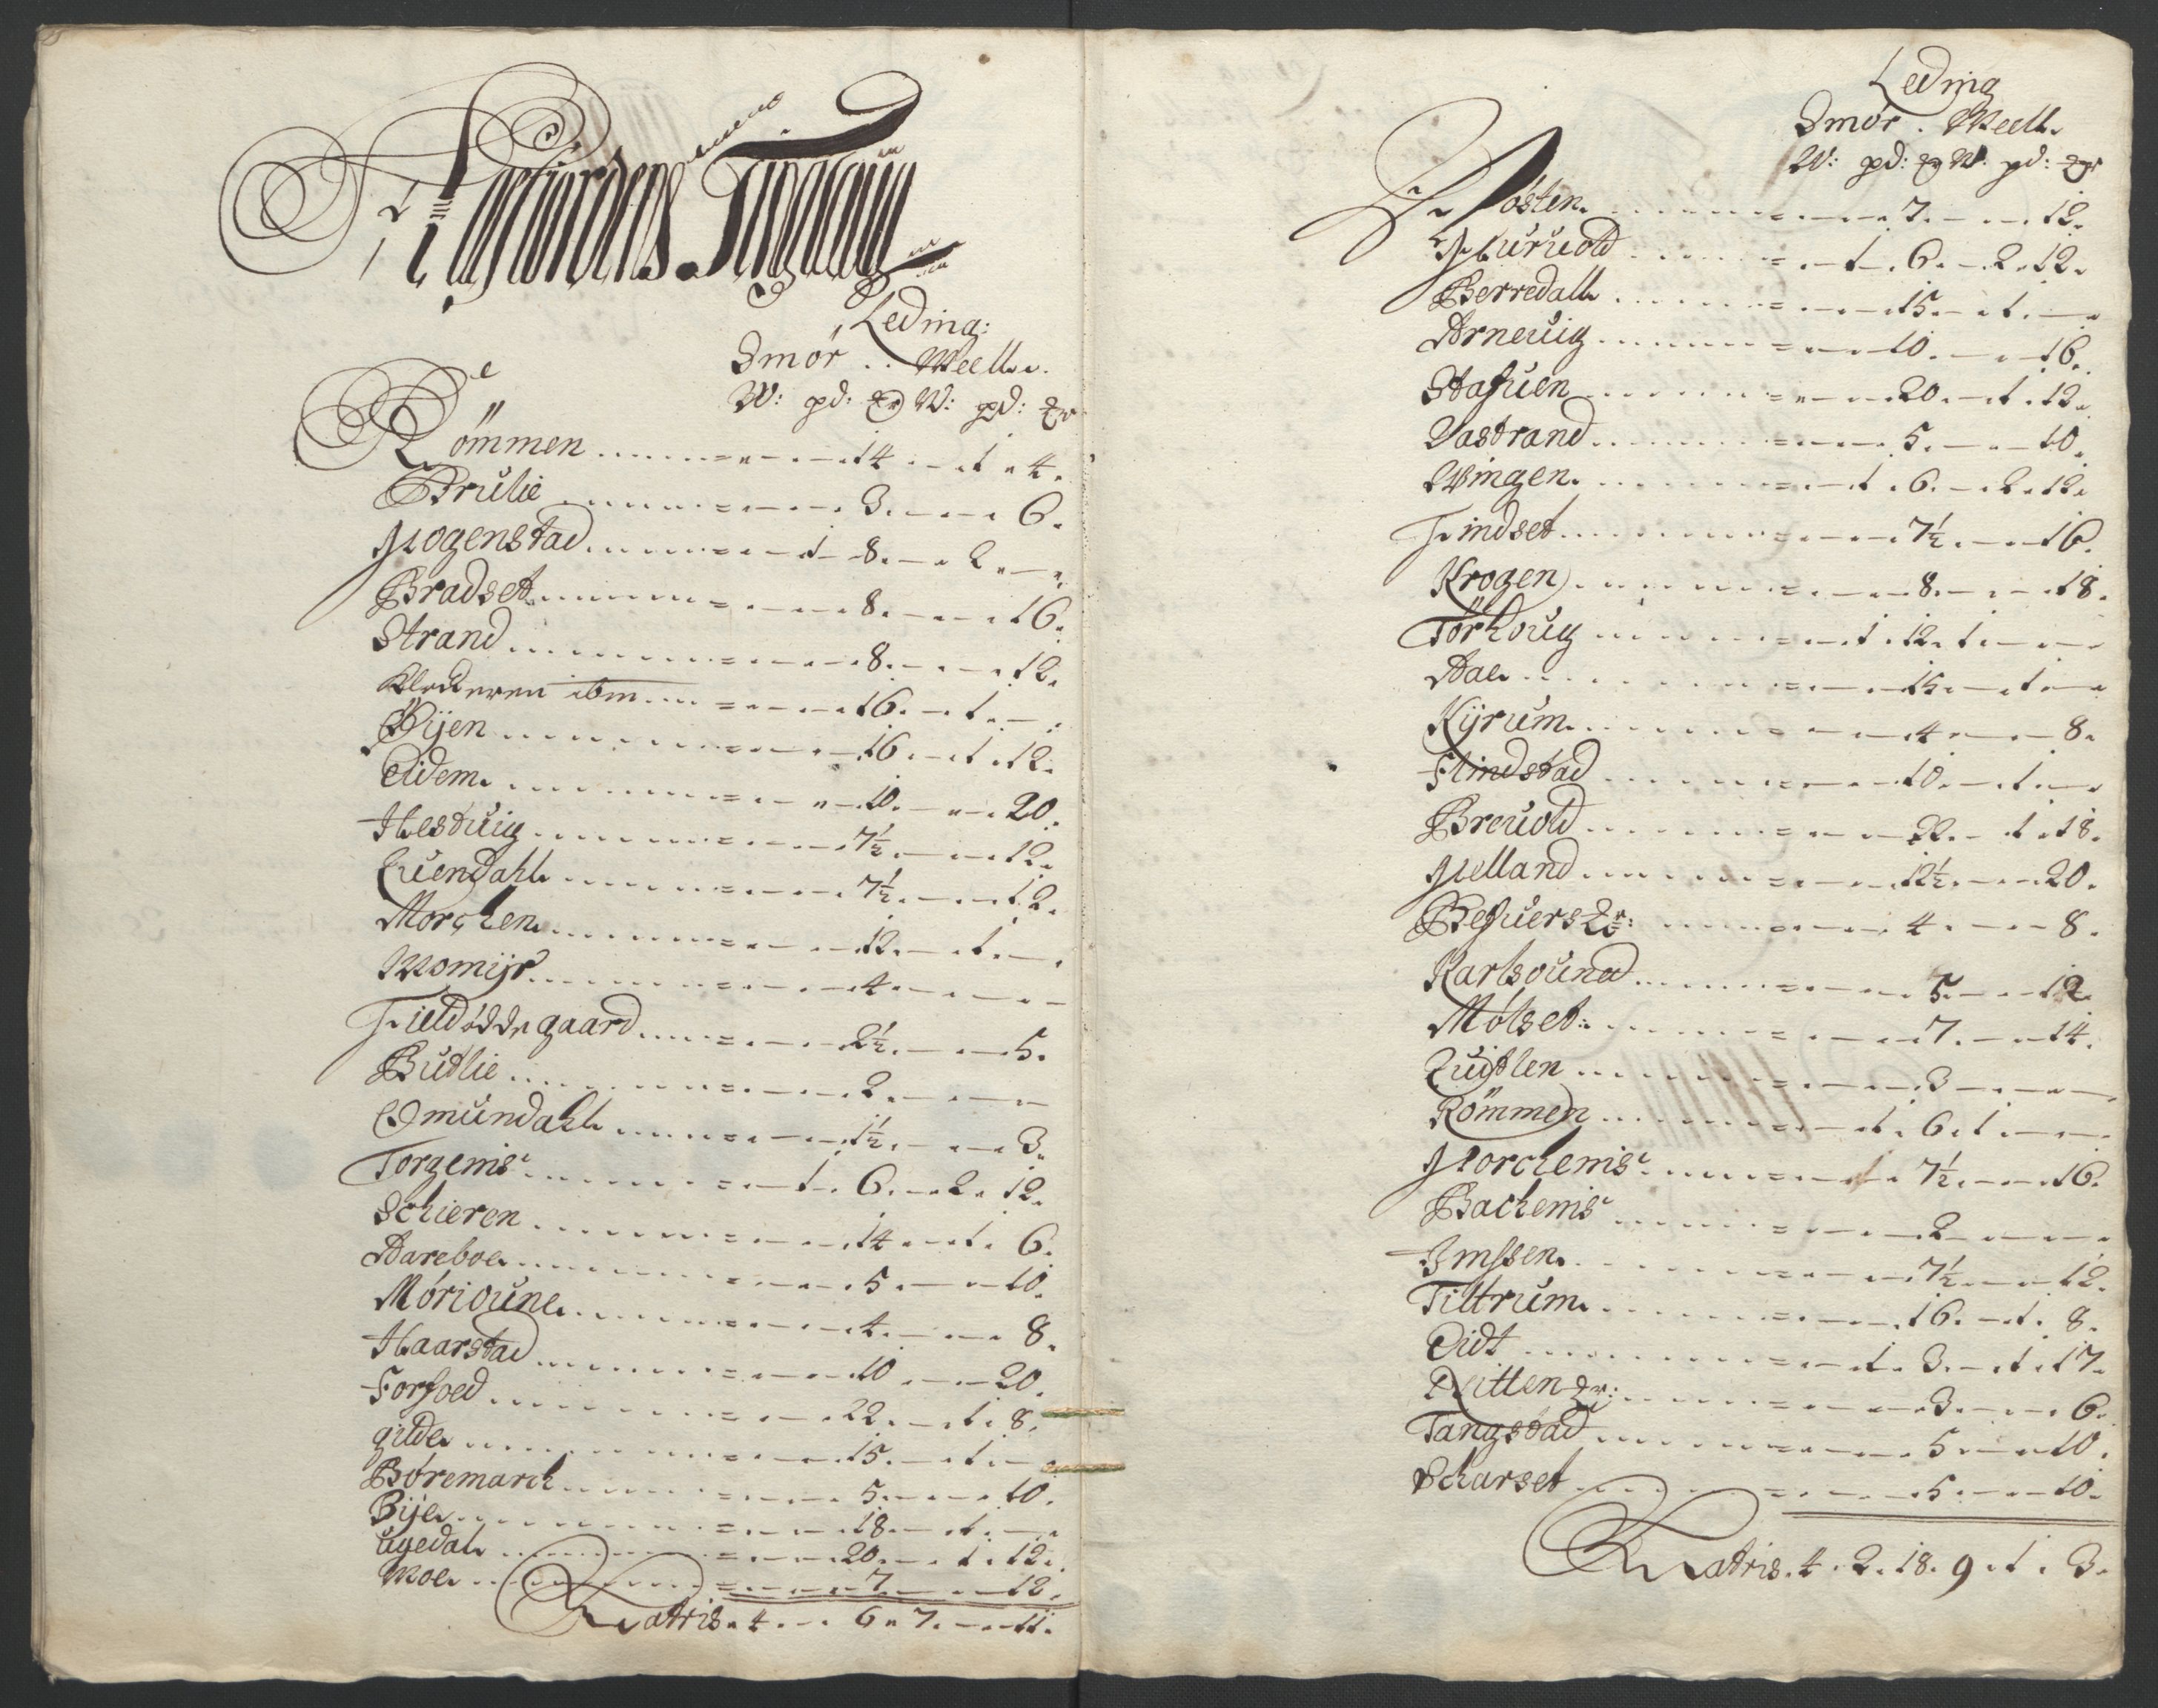 Agefiordens Tinglaug
Leding:
Smør .. Meell.
W: pd: W: pd:
Römmen - - 14 - 1 - 4.
Brulie - - 3 - - 6.
Hogenstad - 1 - 8 - 2 - -
Bradset - - 8 - - 16.
Strand - - 8 - - 12.
Klockeren ibm - - 16 - 1 -
Bijen - - 16 - 1 - 12.
Eidem - - 10 - - 20.
Hestuig - - 7½ - - 12.
Euendahl - - 7½ - - 12.
Morchen - - 12 - 1 -
Momijr - - 4 - - -
Fieldøddegaard - - 2½ - - 5.
Butlie - - 2 - - -
Omundahl - - 1½ - - 3.
Torgemis - 1 - 6 - 2 - 12.
Schieren - - 14 - 1 - 6.
Aareboe - - 5 - - 10.
Mörioune - - 4 - - 8.
Haarstad - - 10 - - 20.
Forsoed - - 22 - 1 - 8.
gilde - - 15 - 1 -
Böremarch - - 5 - - 10.
Bije - - 18 - 1 -
Ugedal - - 20 - 1 - 12.
Moe - - 7 - - 12.
Latris. 4 - - 6 - 7 - - 11.
Leding
Smør . Meell.
W: pd: W: pd:
Hosten - - 7 - - 12.
Huruold - 1 - 6 - 2 - 12.
Berredall - - 15 - 1 - -
Arneuig - - 10 - - 16.
Stafuen - - 20 - 1 - 12.
Vastrand - - 5 - - 10.
Wingen - 1 - 6 - 2 - 12.
Findset - - 7½ - - 16.
Krogen - - 8 - - 18.
Törhoug - 1 - 12 - 1 - -
Aae - - 15 - 1 - -
Kijrum - - 4 - - 8.
Flindstad - - 10 - 1 - -
Breuold - - 22 - 1 - 18.
Helland - - 12½ - - 20.
Befuers - - 4 - - 8.
Karlsound - - 5 - - 12
Mölset - - 7 - - 14.
Quitlen - - 3 - - -
Römmen - 1 - 6 - 1 - - -
Horchemis - - 7½ - - 16.
Bachemis - - 2 - - -
Imssen - - 7½ - - 12.
Tiltrum - - 16 - 1 - 8.
Eidt - 1 - 3 - 1 - 17.
Ritten - - 3 - - 6.
Tangstad - - 5 - - 10.
Scharset - - 5 - - 10.
Latris. 4 . 2 . 18 . 9 . 1 . 3.